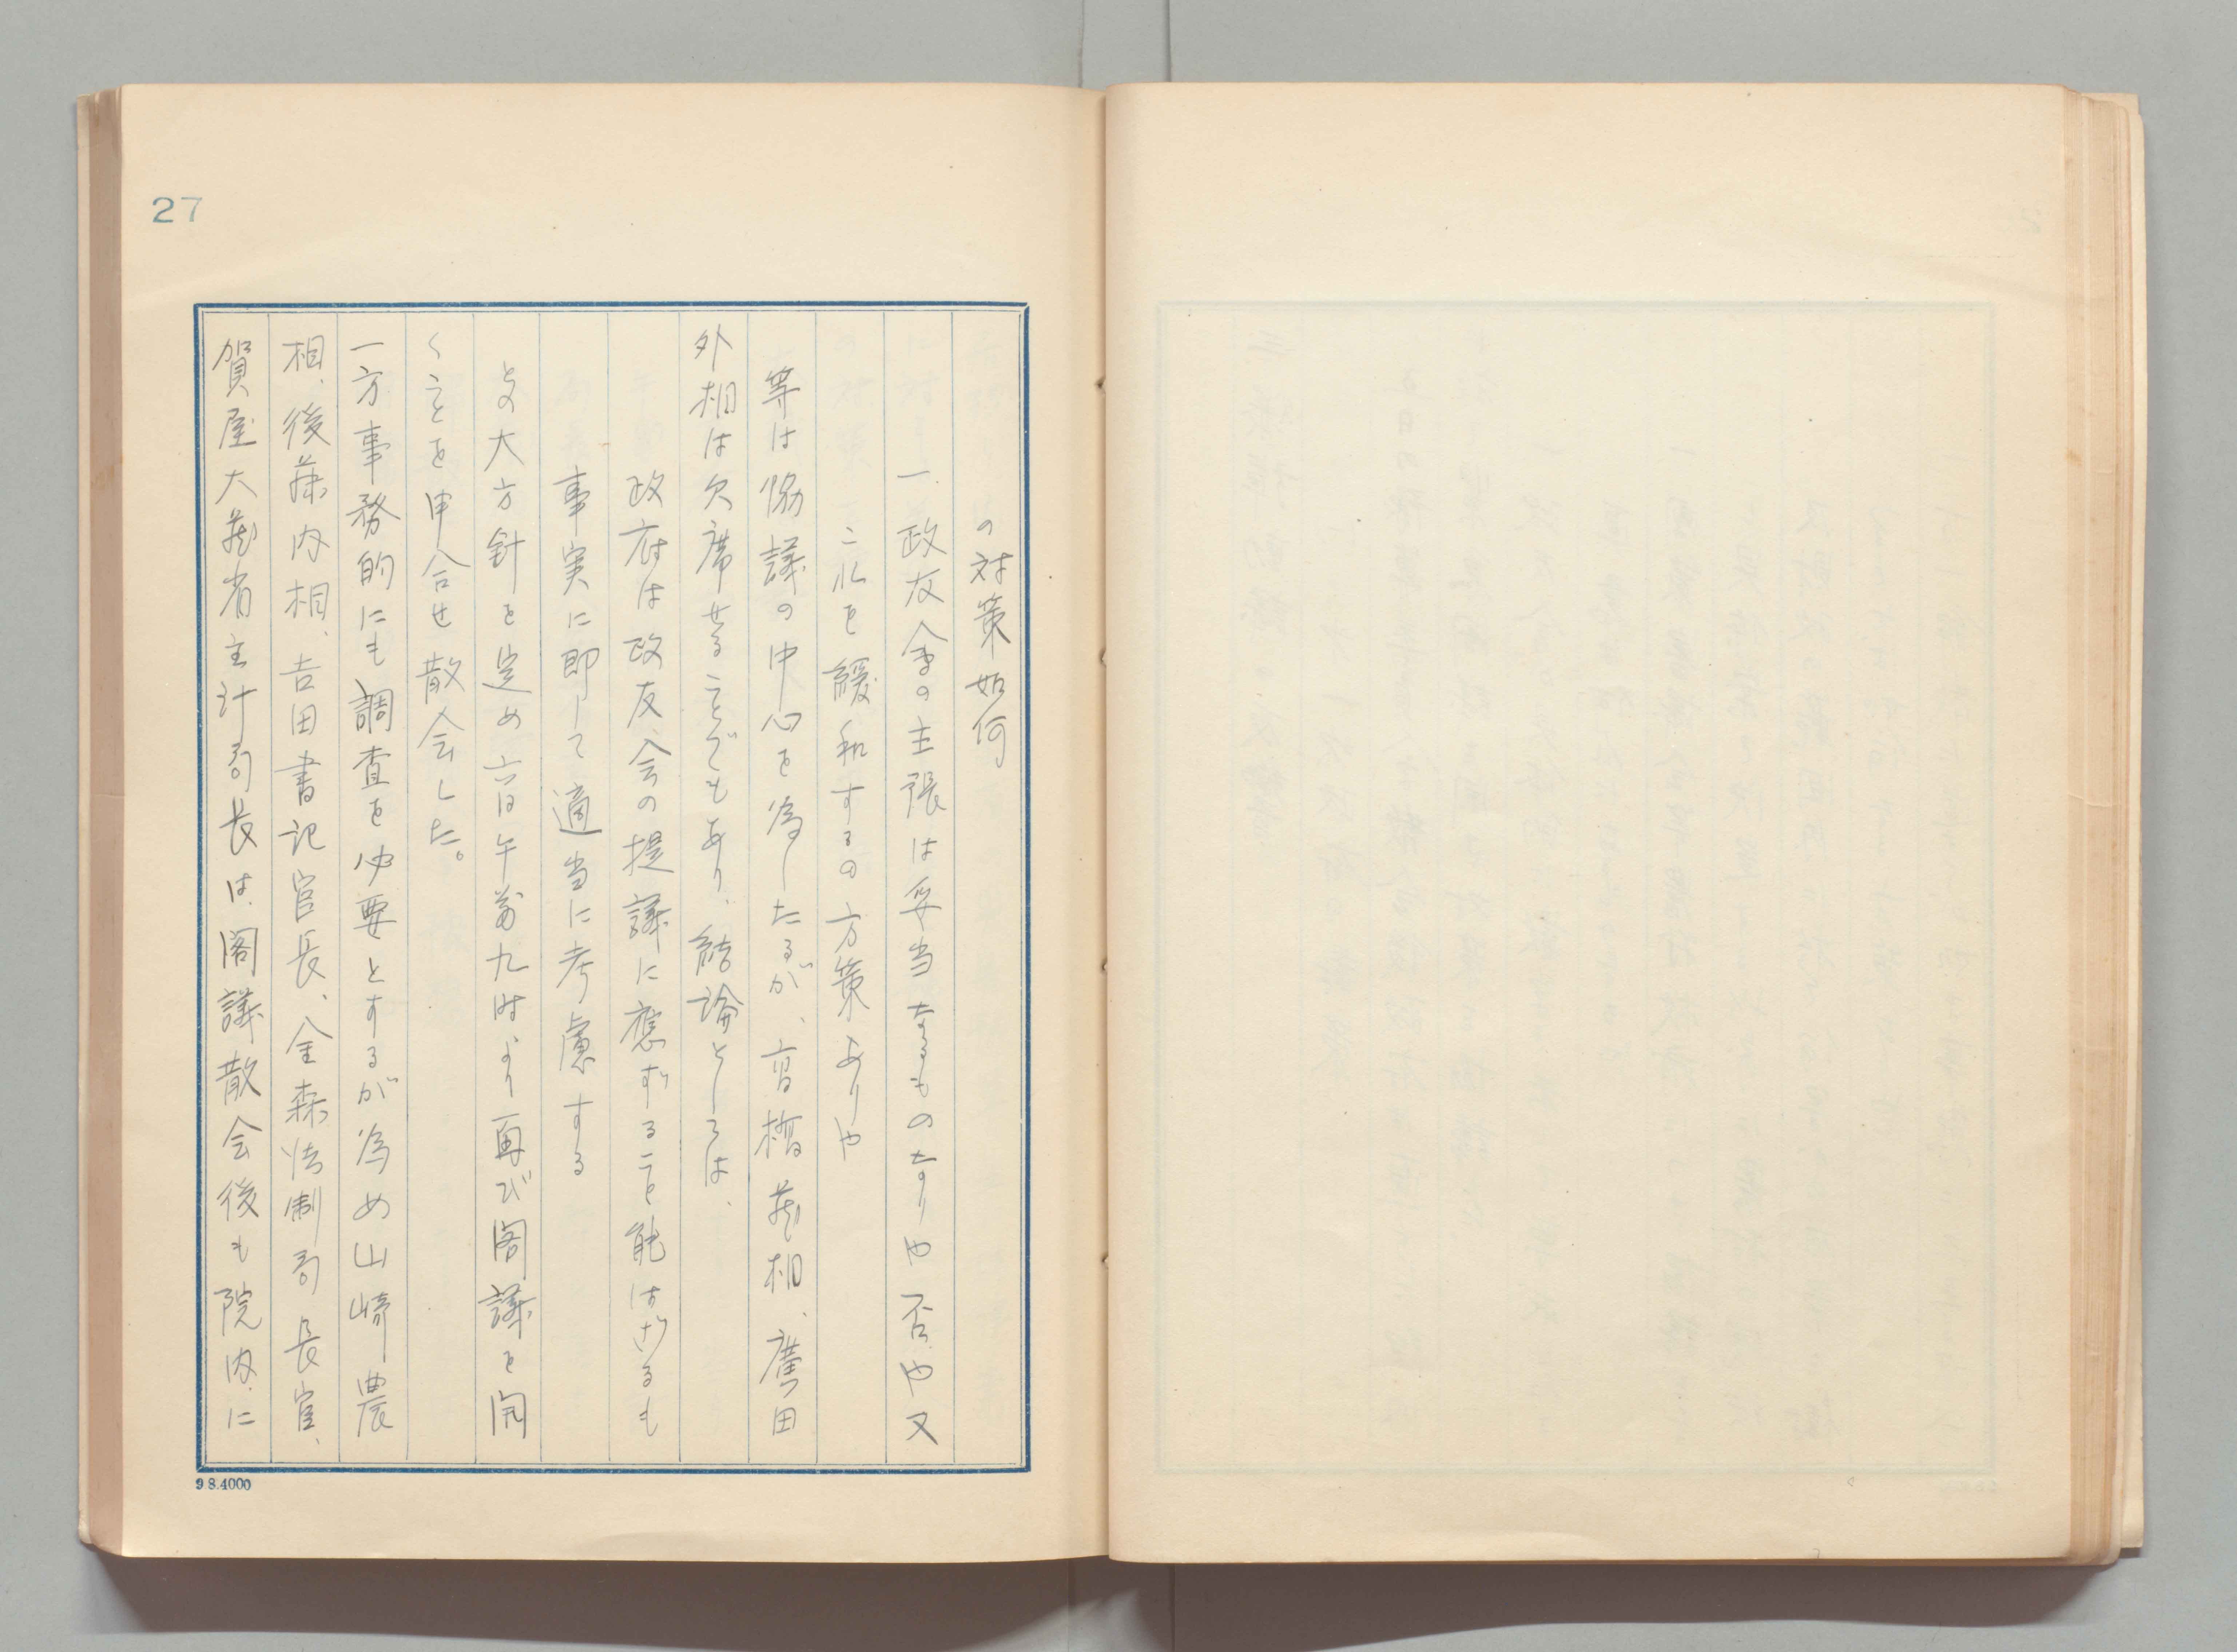 27
の対策如何
一、政友会の主張は妥当なるものなりや否や又
これを緩和するの方策ありや
等は協議の中心を為したるが、高橋蔵相、廣田
外相は欠席せることでもあり、結論としては、
政府は政友会の提議に應ずること能はざるも
事実に即して適当に考慮する
との大方針を定め六日午前九時より再び閣議を開
くことを申合せ散会した。
一方事務的にも調査を必要とするが為め山崎農
相、後藤内相、吉田書記官長、金森法制局長官、
賀屋大蔵省主計局長は閣議散会後も院内に
9.8.4000